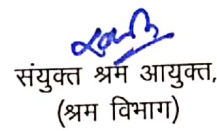 संयुक्त श्रम आयुक्त,
(श्रम विभाग)